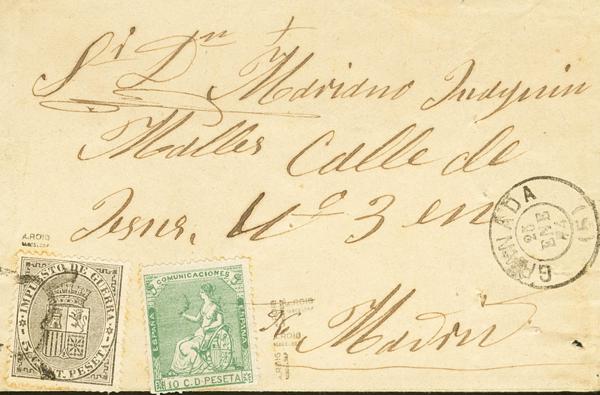 Sr Dn Mariano Joaquin
Malles Calle de
Jesus. Nº 3 en
Madrid
GRANADA
(15)
25
ENE
74
A.ROIG
IMPUESTO DE GUERRA
5 CENT. PESETA
COMUNICACIONES
ESPAÑA
ESPAÑA
10 C. D PESETA
A.ROIG
A.ROIG